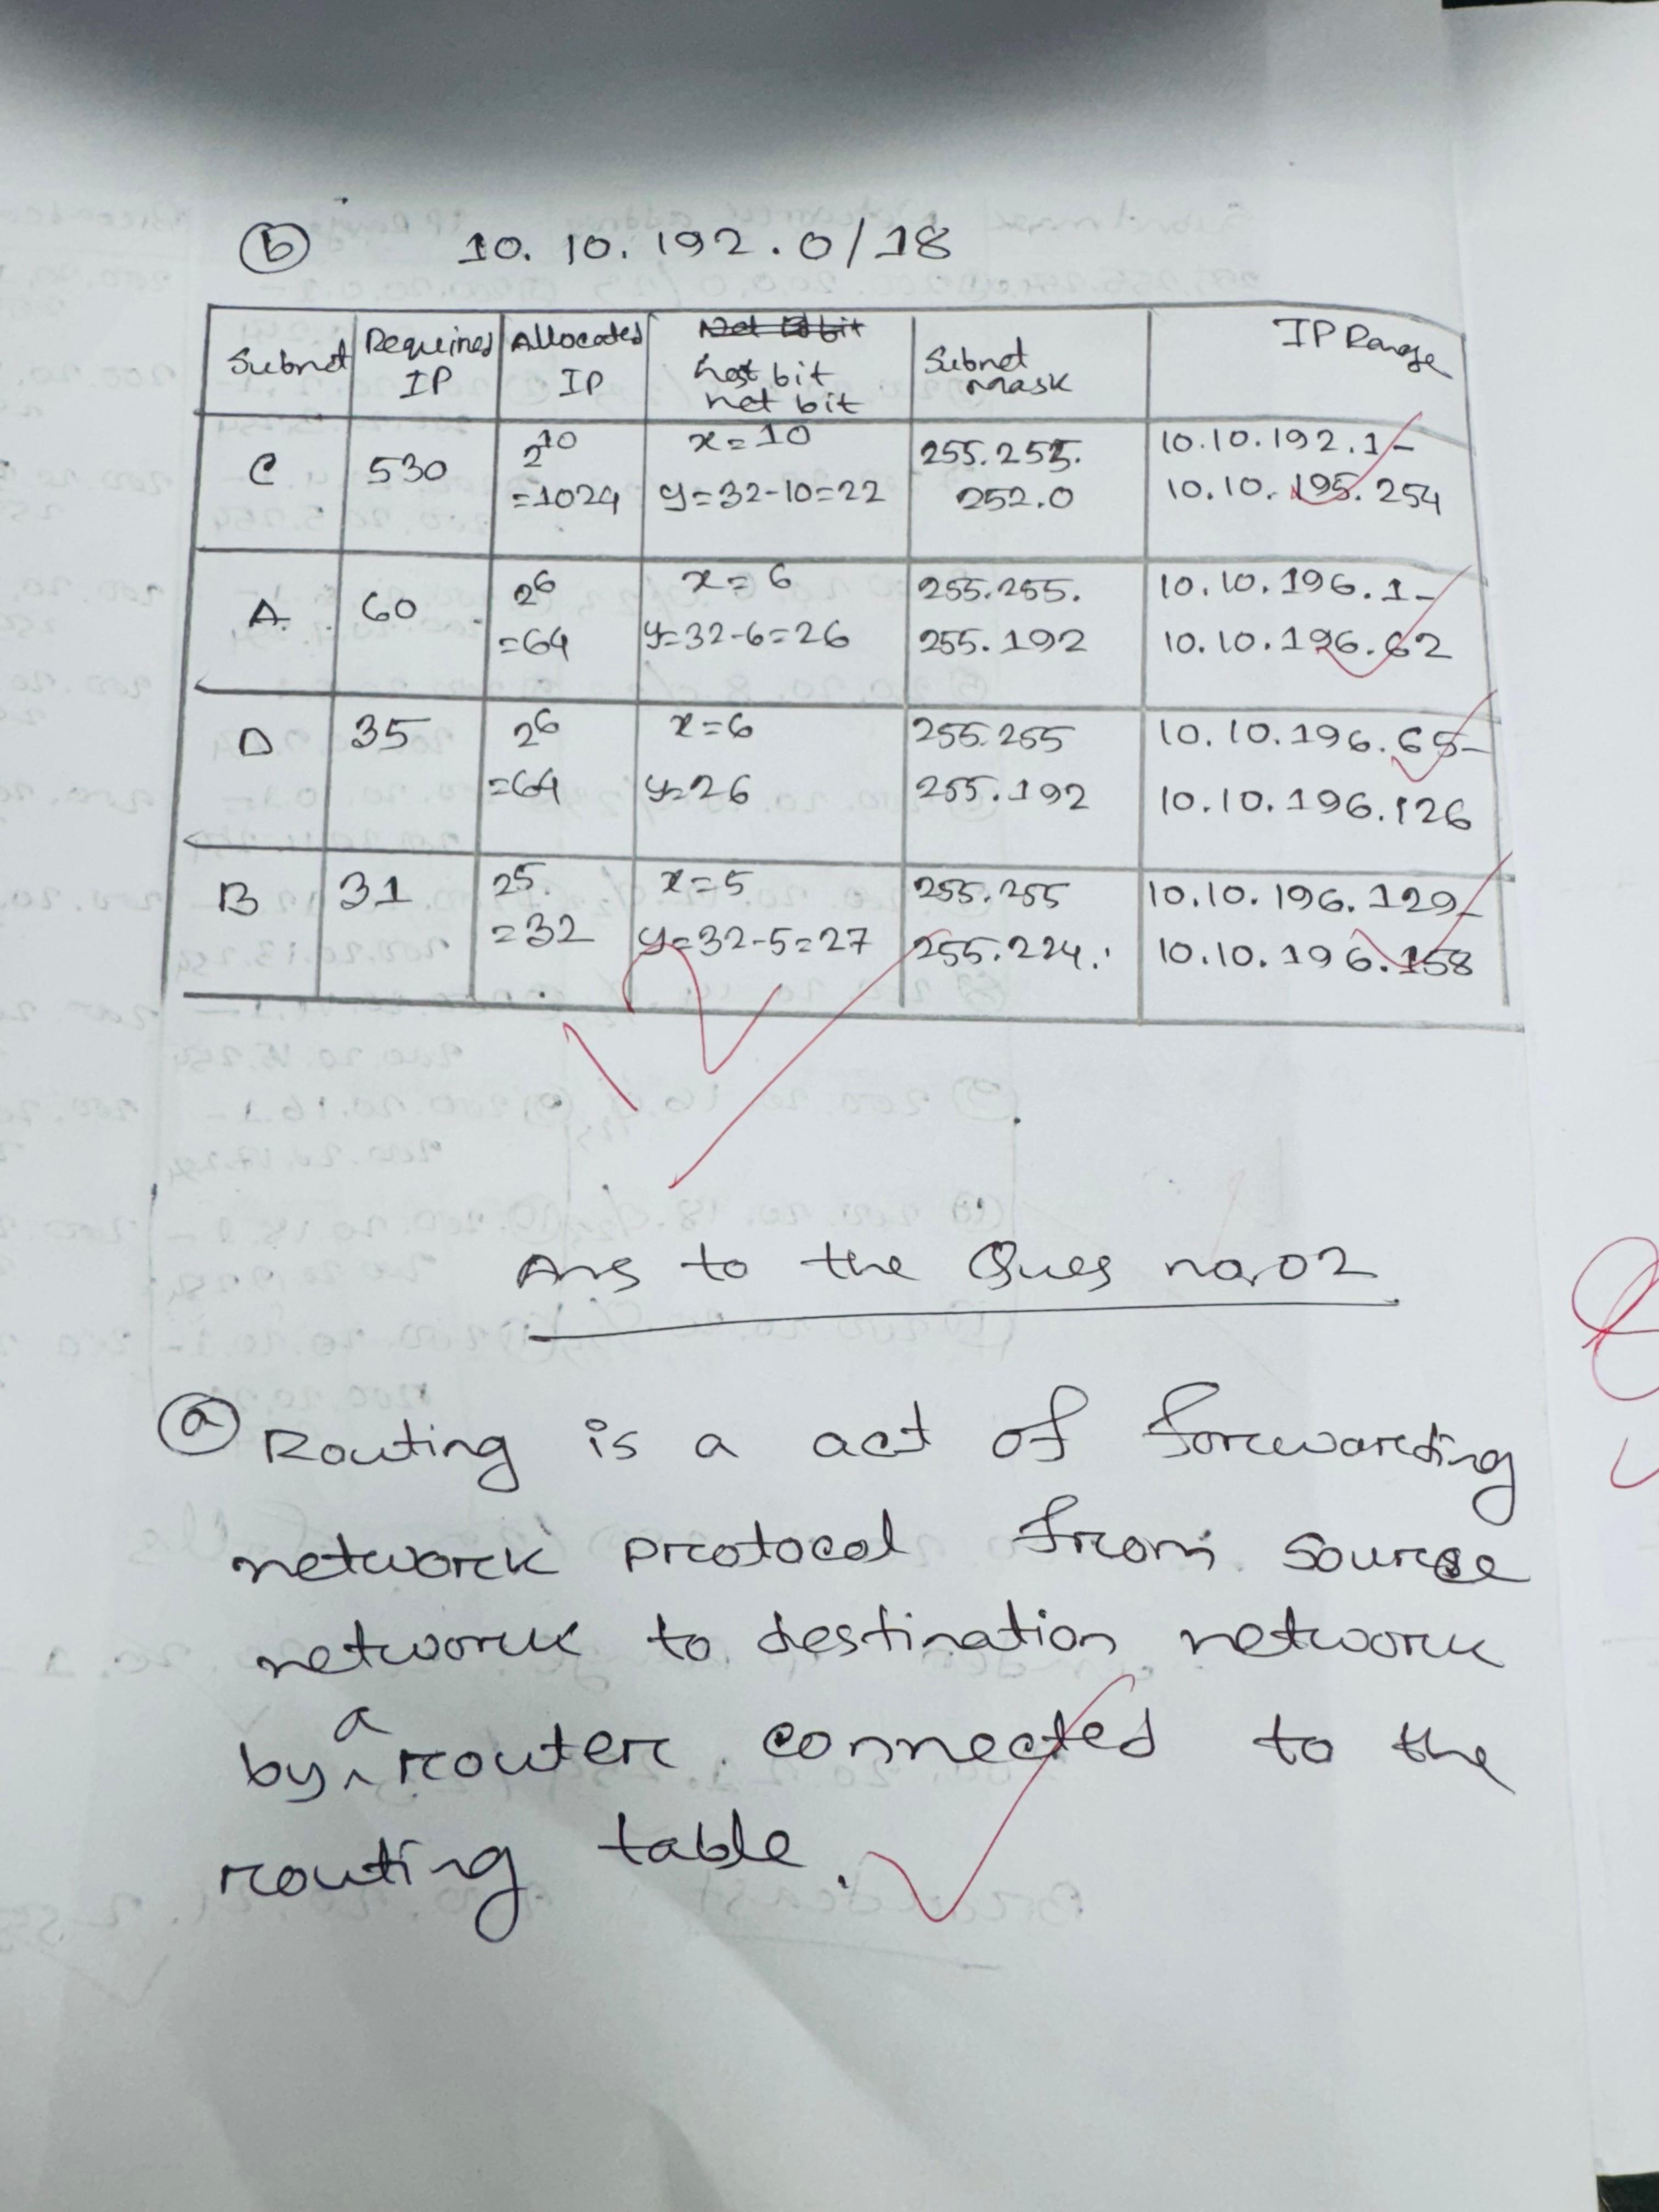 b 10.10.192.0/18
Subnet Required IP Allocated IP host bit net bit Subnet mask IP Range
C 530 2^10 =1024 x=10 y=32-10=22 255.255.252.0 10.10.192.1- 10.10.195.254
A. 60 2^6 =64 x=6 y=32-6=26 255.255.255.192 10.10.196.1- 10.10.196.62
D 35 2^6 =64 x=6 y=26 255.255 255.192 10.10.196.65- 10.10.196.126
B 31 2^5. =32 x=5 y=32-5=27 255.255 255.224. 10.10.196.129- 10.10.196.158
Ans to the Ques no,02
a Routing is a act of forwarding
network protocol from source
network to destination network
by a router connected to the
routing table.